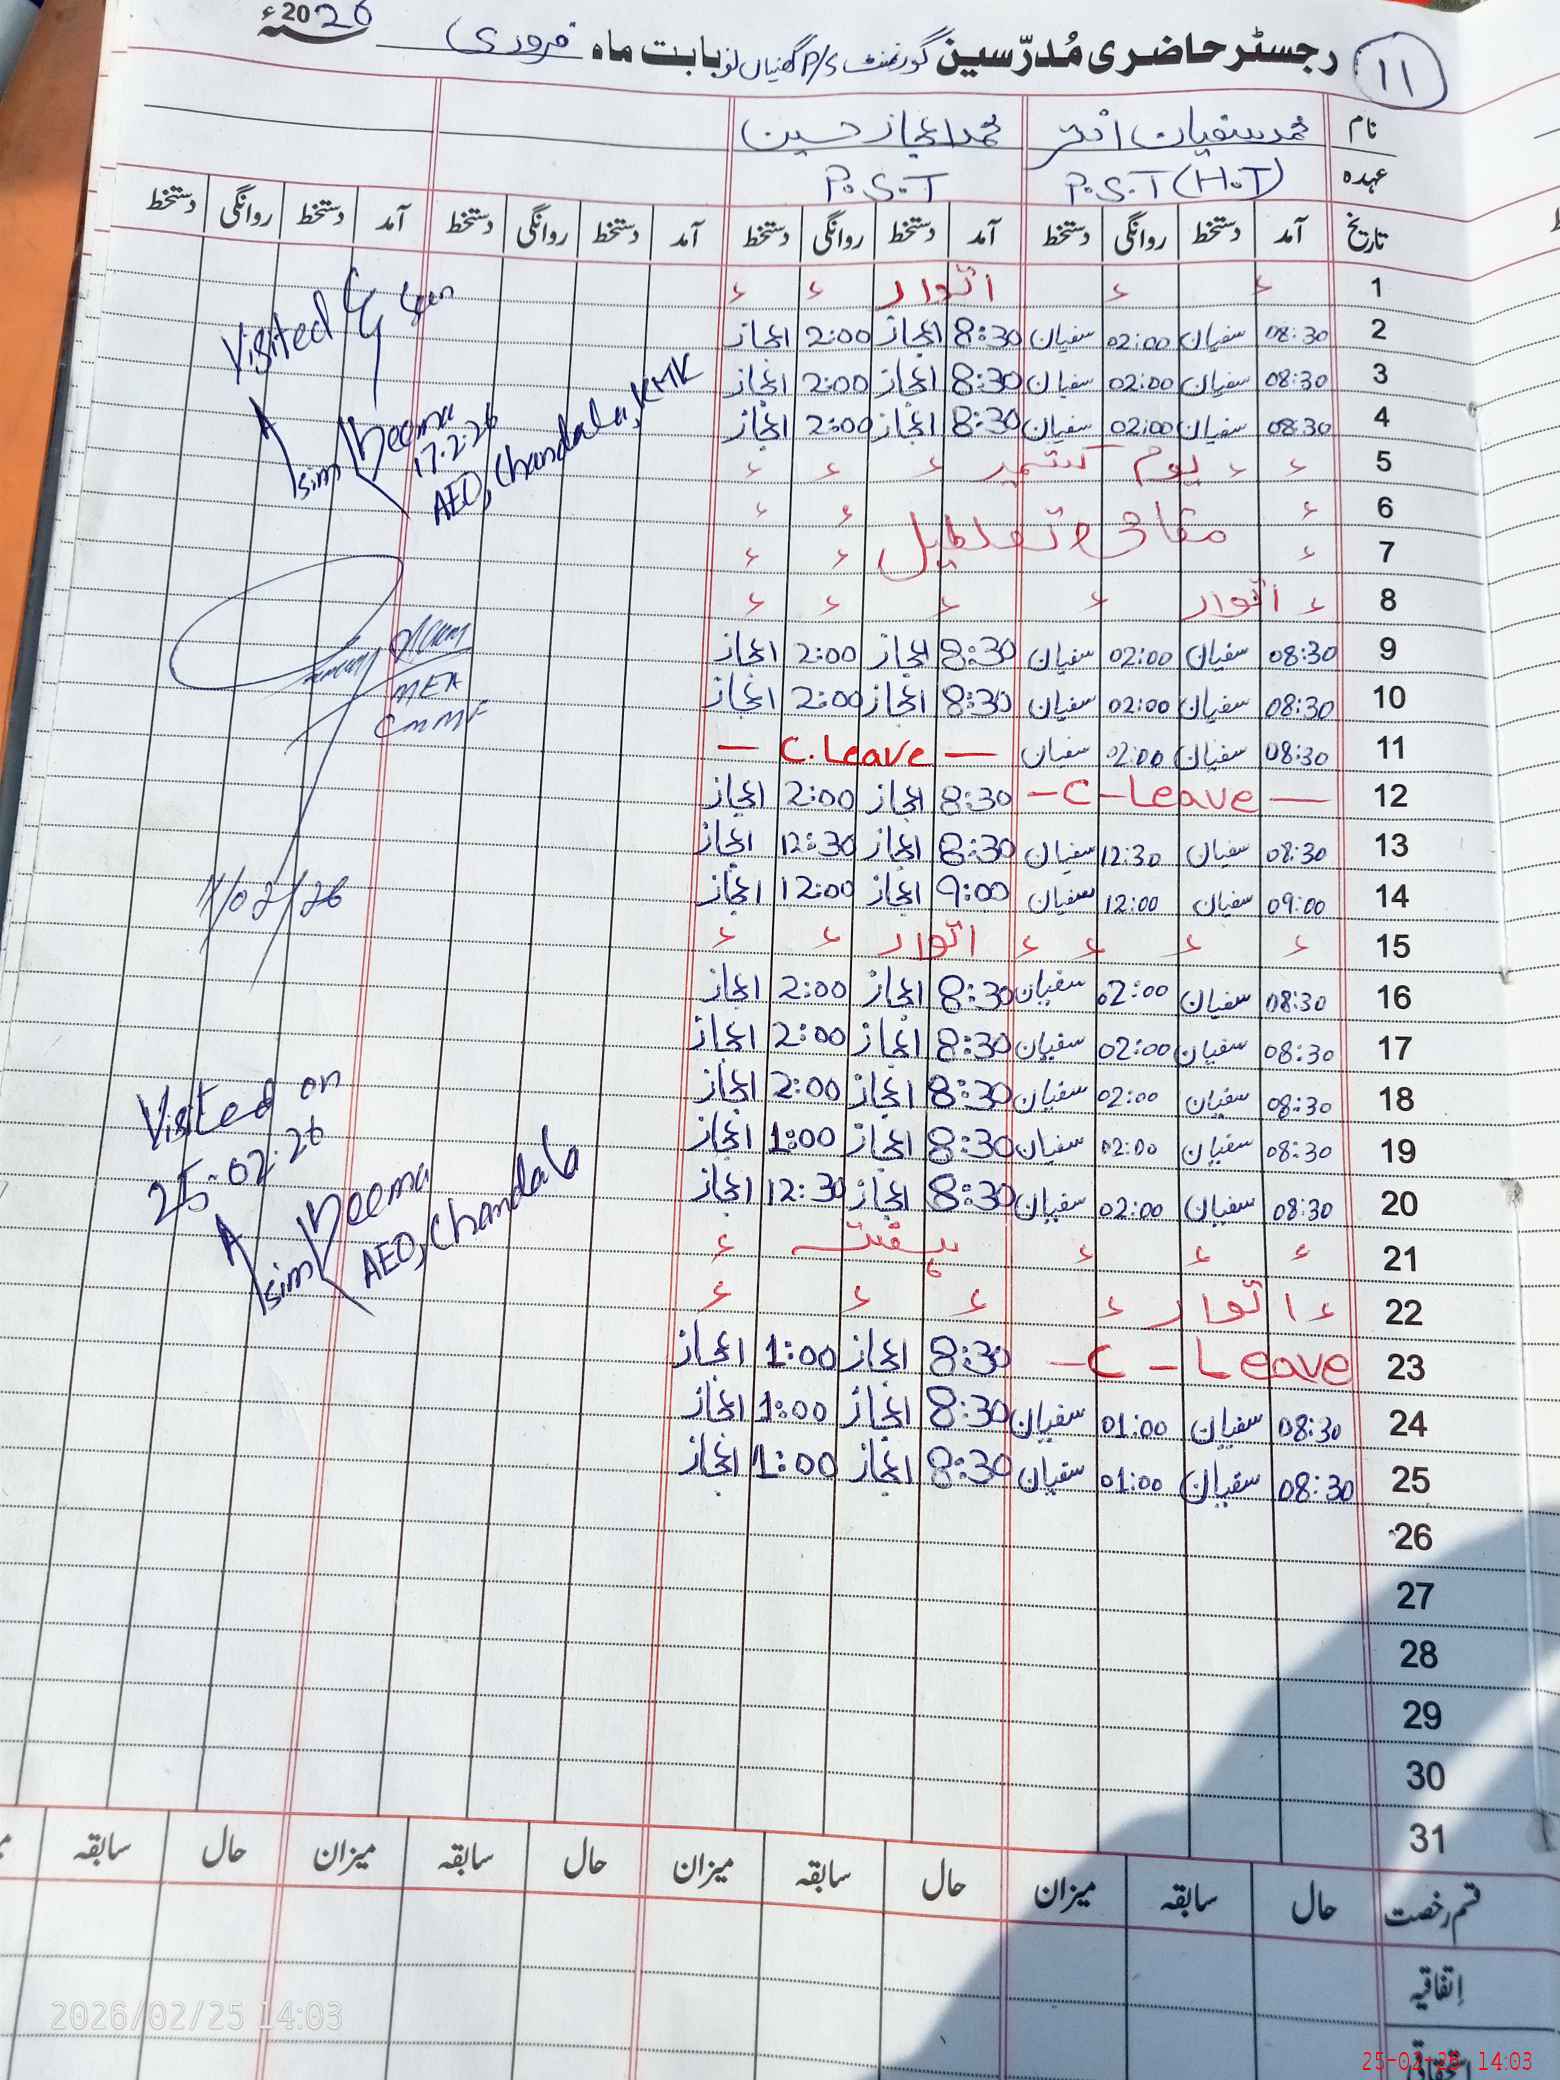 11 رجسٹر حاضری مُدرّسین گورنمنٹ P/S گھنیاں نو بابت ماہ فروری 2026ء
نام محمد سفیان محمد اعجاز حسین
عہدہ P.S.T (H.T) P.S.T
تاریخ آمد دستخط روانگی دستخط آمد دستخط روانگی دستخط آمد دستخط روانگی دستخط آمد دستخط روانگی دستخط
1 ء ء اتوار ء ء
2 08:30 سفیان 02:00 سفیان 8:30 اعجاز 2:00 اعجاز
3 08:30 سفیان 02:00 سفیان 8:30 اعجاز 2:00 اعجاز
4 08:30 سفیان 02:00 سفیان 8:30 اعجاز 2:00 اعجاز
5 ء ء یوم کشمیر ء ء ء
6 ء مقامی تعطیل ء ء
7 ء ء ء
8 ء اتوار ء ء ء ء
9 08:30 سفیان 02:00 سفیان 8:30 اعجاز 2:00 اعجاز
10 08:30 سفیان 02:00 سفیان 8:30 اعجاز 2:00 اعجاز
11 08:30 سفیان 02:00 سفیان — C.Leave —
12 — C — Leave — 8:30 اعجاز 2:00 اعجاز
13 08:30 سفیان 12:30 سفیان 8:30 اعجاز 12:30 اعجاز
14 09:00 سفیان 12:00 سفیان 9:00 اعجاز 12:00 اعجاز
15 ء ء ء ء اتوار ء ء
16 08:30 سفیان 02:00 سفیان 8:30 اعجاز 2:00 اعجاز
17 08:30 سفیان 02:00 سفیان 8:30 اعجاز 2:00 اعجاز
18 08:30 سفیان 02:00 سفیان 8:30 اعجاز 2:00 اعجاز
19 08:30 سفیان 02:00 سفیان 8:30 اعجاز 1:00 اعجاز
20 08:30 سفیان 02:00 سفیان 8:30 اعجاز 12:30 اعجاز
21 ء ء ء ہفتہ ء
22 ء اتوار ء ء ء ء
23 — C — Leave 8:30 اعجاز 1:00 اعجاز
24 08:30 سفیان 01:00 سفیان 8:30 اعجاز 1:00 اعجاز
25 08:30 سفیان 01:00 سفیان 8:30 اعجاز 1:00 اعجاز
26
27
28
29
30
31
Visited
Asim Cheema
17.2.26
AEO, Chandala, KMK
MEA
11/02/26
Visted on
25-02-26
Asim Cheema
AEO, Chandala
قسم رخصت حال سابقہ میزان حال سابقہ میزان حال سابقہ میزان حال سابقہ
اِتفاقیہ
2026/02/25 14:03
25-02-26 14:03